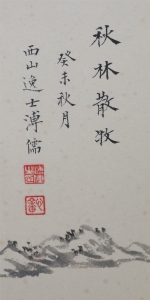 秋林散牧
癸未秋月
西山逸士溥儒